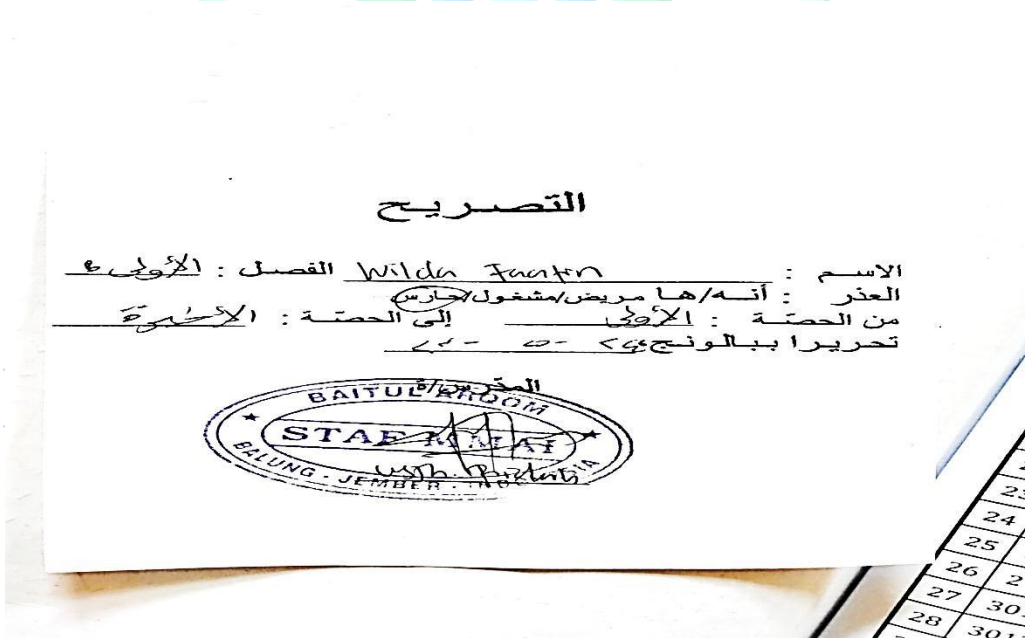 التصريح
الاسم : Wilda Faatin الفصل : الأولى B
العذر : أنه/ها مريض/مشغول/حارس
من الحصة : الأولى إلى الحصة : الأخيرة
تحريرا ببالونج
المدرس/ة
BAITUL ARQOM
STAF MMAI
BALUNG - JEMBER -
24
25
26
27 30
28 301